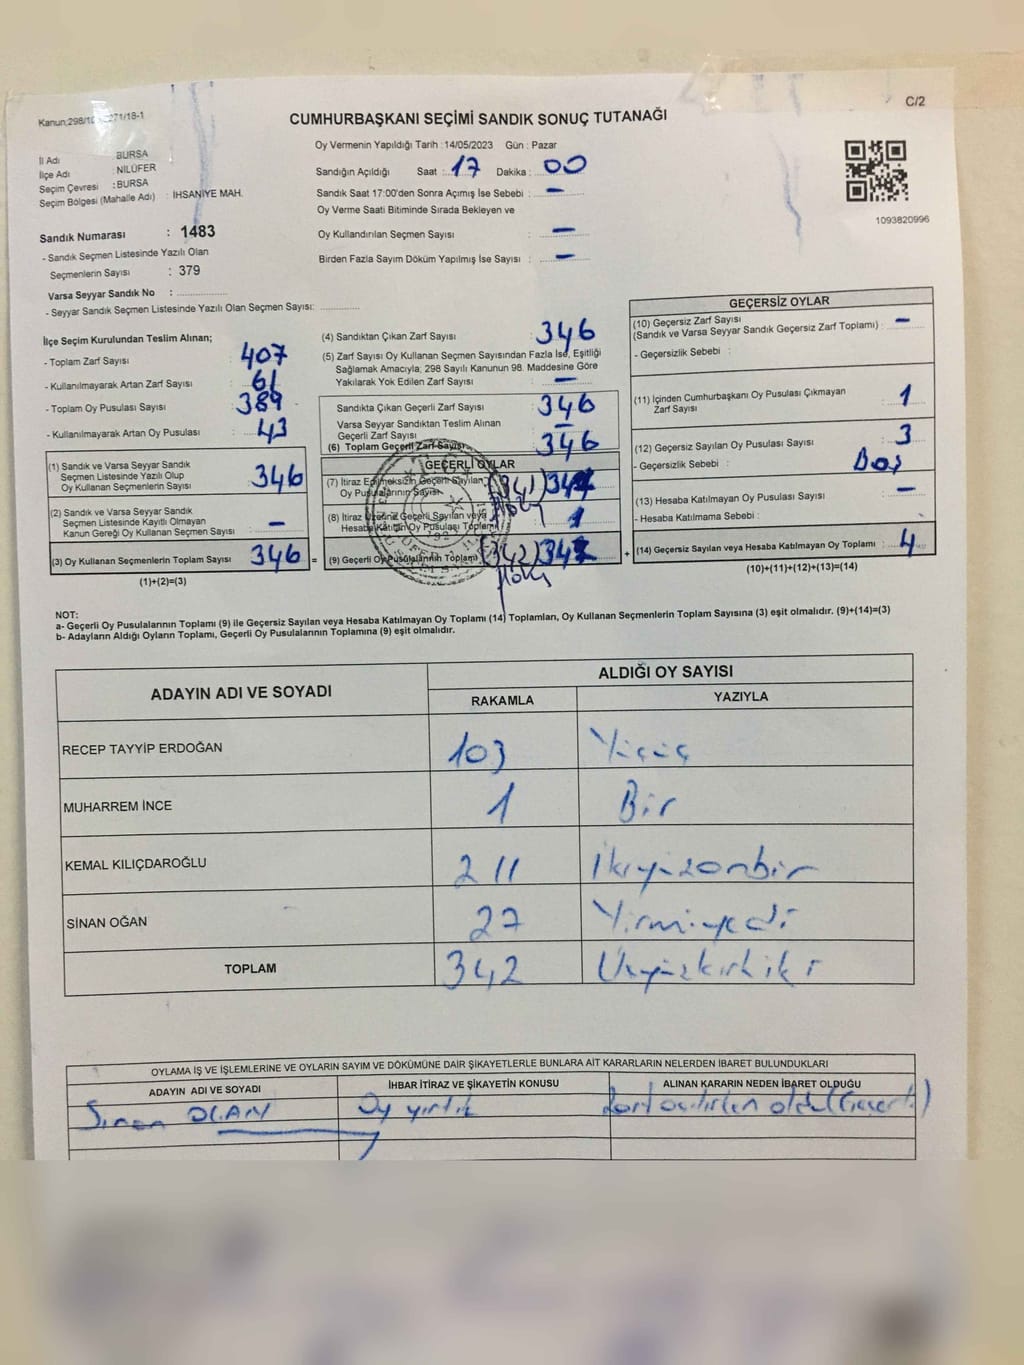 C/2
Kanun:298/10 271/18-1
CUMHURBAŞKANI SEÇİMİ SANDIK SONUÇ TUTANAĞI
Oy Vermenin Yapıldığı Tarih : 14/05/2023 Gün : Pazar
İl Adı : BURSA
İlçe Adı : NİLÜFER
Seçim Çevresi : BURSA
Seçim Bölgesi (Mahalle Adı) : İHSANİYE MAH.
Sandığın Açıldığı Saat : 17 Dakika : 00
Sandık Saat 17:00'den Sonra Açımış İse Sebebi : –
Oy Verme Saati Bitiminde Sırada Bekleyen ve
Oy Kullandırılan Seçmen Sayısı : –
Birden Fazla Sayım Döküm Yapılmış İse Sayısı : –
1093820996
Sandık Numarası : 1483
- Sandık Seçmen Listesinde Yazılı Olan
Seçmenlerin Sayısı : 379
Varsa Seyyar Sandık No :
- Seyyar Sandık Seçmen Listesinde Yazılı Olan Seçmen Sayısı:
İlçe Seçim Kurulundan Teslim Alınan;
- Toplam Zarf Sayısı : 407
- Kullanılmayarak Artan Zarf Sayısı : 61
- Toplam Oy Pusulası Sayısı : 389
- Kullanılmayarak Artan Oy Pusulası : 43
(1) Sandık ve Varsa Seyyar Sandık
Seçmen Listesinde Yazılı Olup
Oy Kullanan Seçmenlerin Sayısı : 346
(2) Sandık ve Varsa Seyyar Sandık
Seçmen Listesinde Kayıtlı Olmayan
Kanun Gereği Oy Kullanan Seçmen Sayısı : –
(3) Oy Kullanan Seçmenlerin Toplam Sayısı : 346
(1)+(2)=(3)
(4) Sandıktan Çıkan Zarf Sayısı : 346
(5) Zarf Sayısı Oy Kullanan Seçmen Sayısından Fazla İse, Eşitliği
Sağlamak Amacıyla, 298 Sayılı Kanunun 98. Maddesine Göre
Yakılarak Yok Edilen Zarf Sayısı : –
Sandıkta Çıkan Geçerli Zarf Sayısı : 346
Varsa Seyyar Sandıktan Teslim Alınan
Geçerli Zarf Sayısı : –
(6) Toplam Geçerli Zarf Sayısı : 346
GEÇERLİ OYLAR
(7) İtiraz Edilmeksizin Geçerli Sayılan
Oy Pusulalarının Sayısı : (341)
(8) İtiraz Üzerine Geçerli Sayılan veya
Hesaba Katılan Oy Pusulası Toplamı : 1
= (9) Geçerli Oy Pusulalarının Toplamı : (342)
+
GEÇERSİZ OYLAR
(10) Geçersiz Zarf Sayısı
(Sandık ve Varsa Seyyar Sandık Geçersiz Zarf Toplamı) : –
- Geçersizlik Sebebi :
(11) İçinden Cumhurbaşkanı Oy Pusulası Çıkmayan
Zarf Sayısı : 1
(12) Geçersiz Sayılan Oy Pusulası Sayısı : 3
- Geçersizlik Sebebi : Boş
(13) Hesaba Katılmayan Oy Pusulası Sayısı : –
- Hesaba Katılmama Sebebi :
(14) Geçersiz Sayılan veya Hesaba Katılmayan Oy Toplamı : 4
(10)+(11)+(12)+(13)=(14)
NOT:
a- Geçerli Oy Pusulalarının Toplamı (9) ile Geçersiz Sayılan veya Hesaba Katılmayan Oy Toplamı (14) Toplamları, Oy Kullanan Seçmenlerin Toplam Sayısına (3) eşit olmalıdır. (9)+(14)=(3)
b- Adayların Aldığı Oyların Toplamı, Geçerli Oy Pusulalarının Toplamına (9) eşit olmalıdır.
ADAYIN ADI VE SOYADI ALDIĞI OY SAYISI
RAKAMLA YAZIYLA
RECEP TAYYİP ERDOĞAN 103 Yüzüç
MUHARREM İNCE 1 Bir
KEMAL KILIÇDAROĞLU 211 İkiyüzonbir
SİNAN OĞAN 27 Yirmiyedi
TOPLAM 342 Üçyüzkırkiki
OYLAMA İŞ VE İŞLEMLERİNE VE OYLARIN SAYIM VE DÖKÜMÜNE DAİR ŞİKAYETLERLE BUNLARA AİT KARARLARIN NELERDEN İBARET BULUNDUKLARI
ADAYIN ADI VE SOYADI İHBAR İTİRAZ VE ŞİKAYETİN KONUSU ALINAN KARARIN NEDEN İBARET OLDUĞU
Sinan OĞAN Oy yırtık Zarf açılırken oldu (Geçerli)